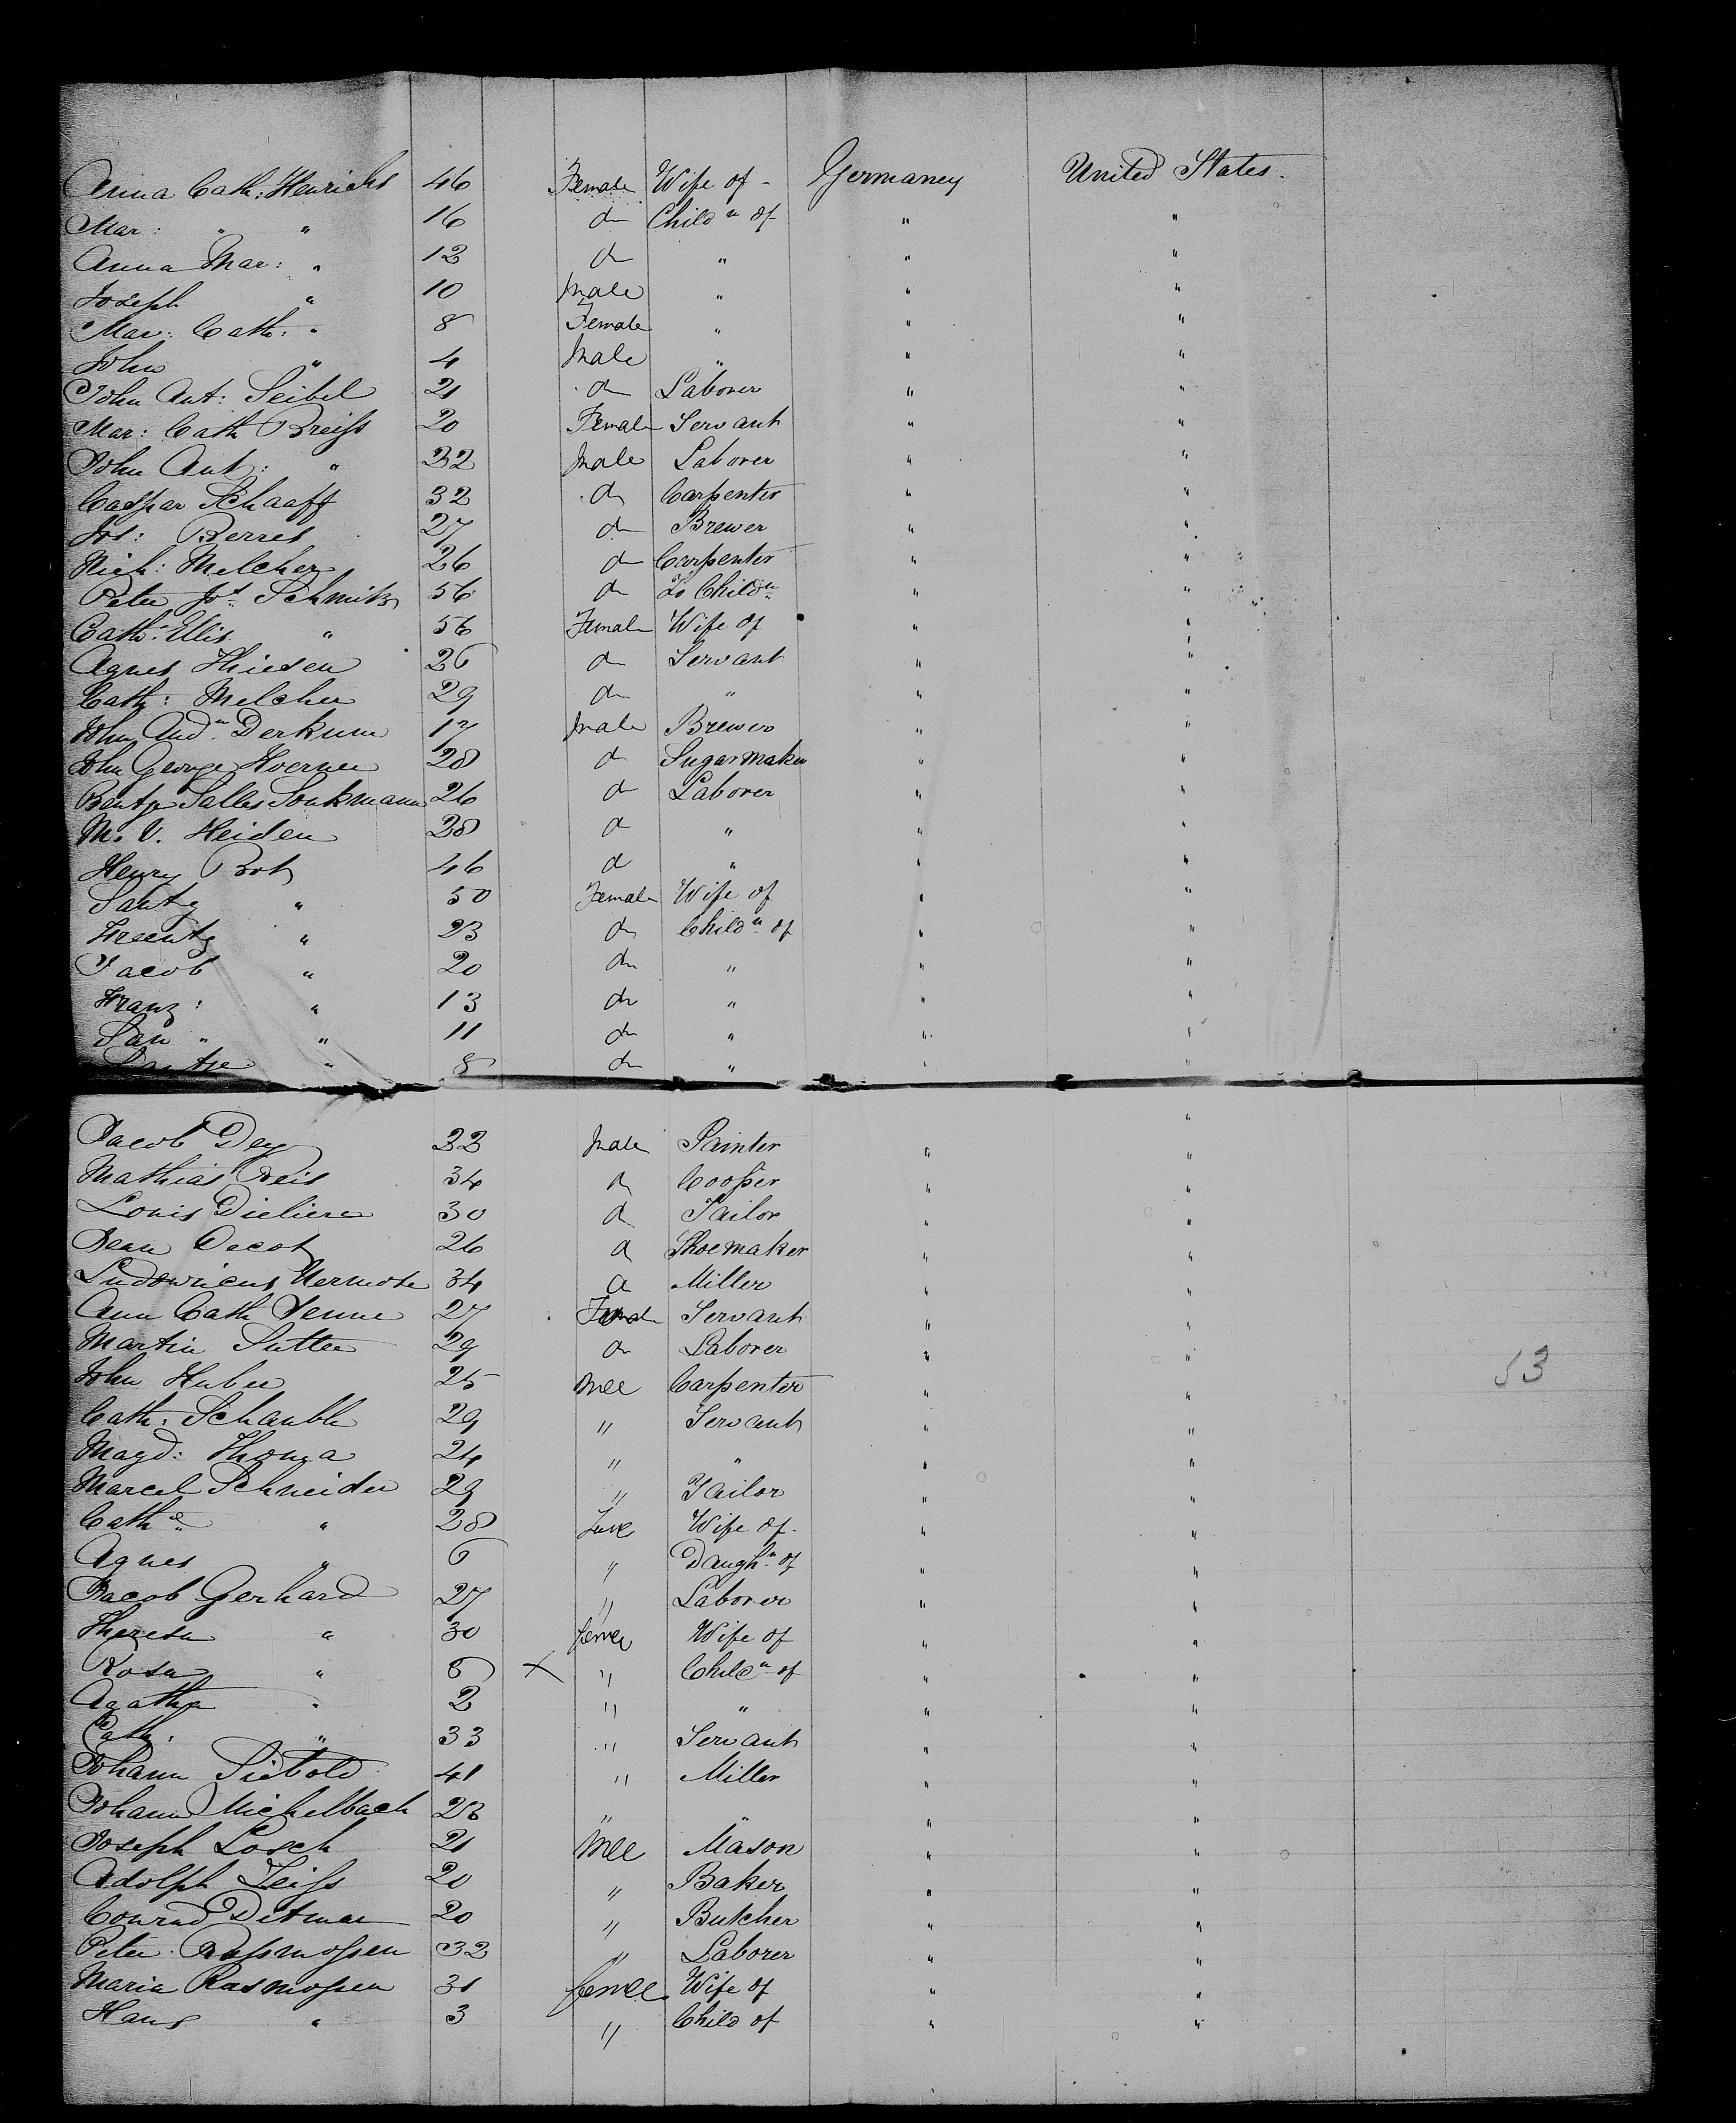 Anna Cath: Henrichs 46 Female Wife of - Germaney United States.
Mar: " " 16 do Childn of " "
Anna Mar: " 12 do " " "
Joseph " 10 Male " " "
Mar: Cath: " 8 Female " " "
John " 4 Male " " "
John Ant: Seibel 21 do Laborer " "
Mar: Cath Breiss 20 Female Servant " "
John Ant: " 32 Male Laborer " "
Caspar Schaaff 32 do Carpenter " "
Jos: Berres 27 do Brewer " "
Nich: Melcher 26 do Carpenter " "
Peter Jos Schmitz 56 do Childn " "
Cath: Ellis " 56 Female Wife of " "
Agnes Thiesen 26 do Servant " "
Cath: Melcher 29 do " " "
John Andn Derkum 17 Male Brewer " "
John George Hoerner 28 do Sugarmaker " "
26 do Laborer " "
M. V. Heiden 28 do " " "
Henry Bot 46 do " " "
" 50 Female Wife of " "
" 23 do Childn of " "
Jacob " 20 do " " "
Franz: " 13 do " " "
" " 11 do " " "
" 8 do " " "
Jacob Dey 33 Male Painter " "
Mathias Reis 34 do Cooper " "
Louis Dieliere 30 do Tailor " "
Jean Decot 26 do Shoemaker " "
Ludowicus Vermote 34 do Miller " "
Ann Cath Venne 27 Female Servant " "
Martin Sutter 29 do Laborer " "
John Huber 25 Mle Carpenter " "
Cath: Schauble 29 " Servant " "
Magd: Thoma 24 " " " "
Marcel Schneider 29 " Tailor " "
Cathe " 28 Wife of - " "
Agnes " 6 " Daughr of " "
Jacob Gerhard 27 " Laborer " "
Theresa " 30 Wife of " "
Rosa " 6 X " Childn of " "
Agatha " 2 " " " "
Cath: " 33 " Servant " "
Johann Siebold 41 " Miller " "
Johann Michelbach 28 " " " "
Joseph Losch 21 Mle Mason " "
Adolph Zeiss 20 " Baker " "
Conrad Ditmar 20 " Butcher " "
Peter Rasmossen 32 " Laborer " "
Maria Rasmossen 31 Wife of " "
Hans " 3 " Child of " "
53